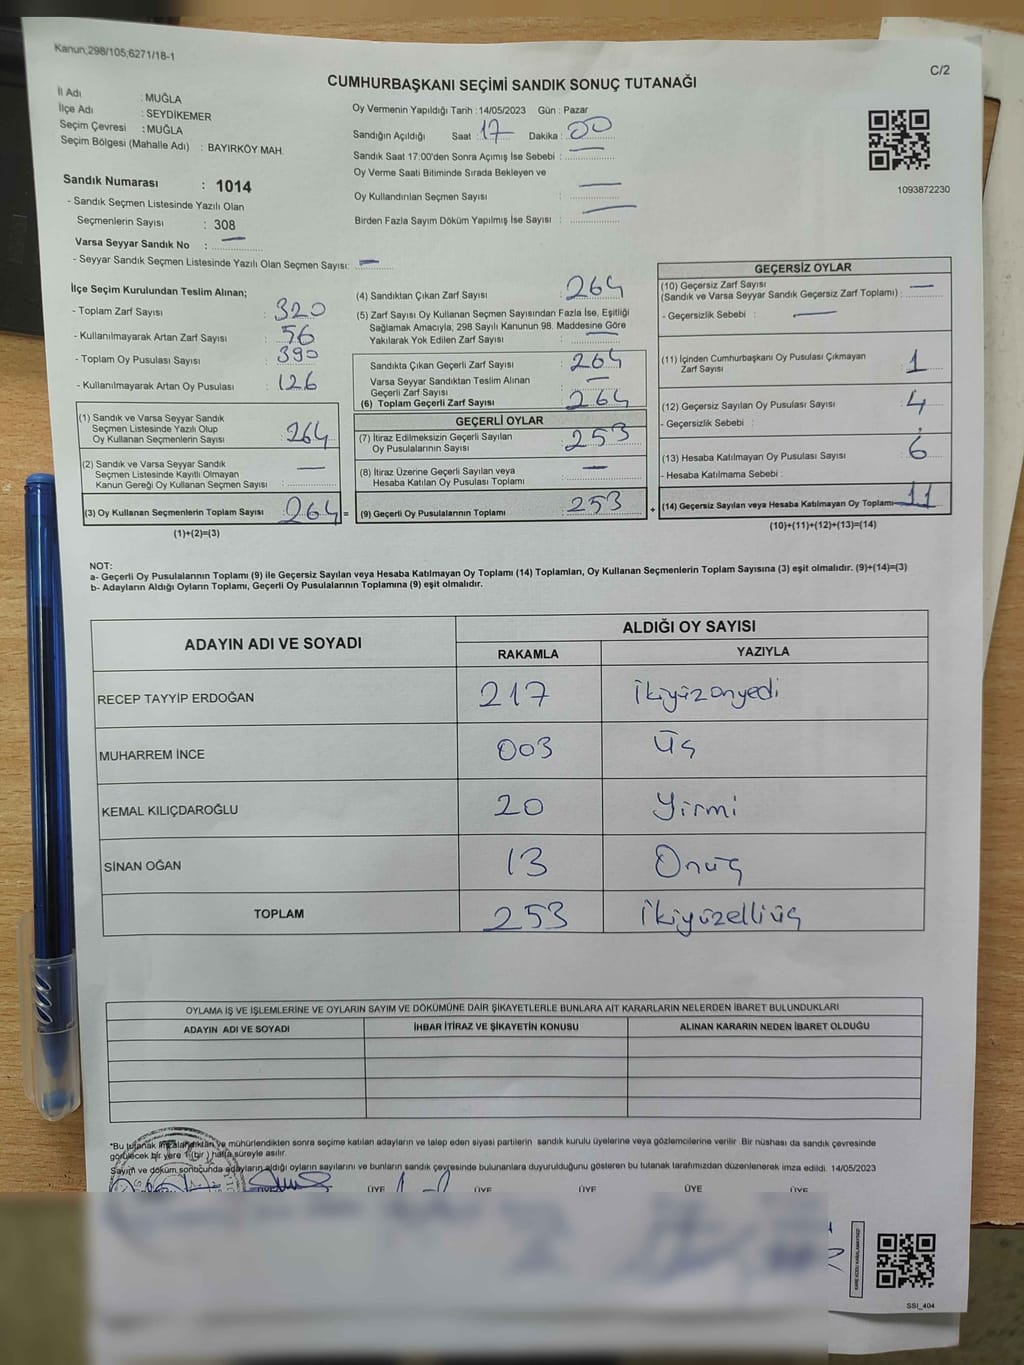 Kanun;298/105;6271/18-1
C/2
CUMHURBAŞKANI SEÇİMİ SANDIK SONUÇ TUTANAĞI
İl Adı : MUĞLA
İlçe Adı : SEYDİKEMER
Seçim Çevresi : MUĞLA
Seçim Bölgesi (Mahalle Adı) : BAYIRKÖY MAH.
Sandık Numarası : 1014
- Sandık Seçmen Listesinde Yazılı Olan
Seçmenlerin Sayısı : 308
Varsa Seyyar Sandık No : —
- Seyyar Sandık Seçmen Listesinde Yazılı Olan Seçmen Sayısı: —
Oy Vermenin Yapıldığı Tarih : 14/05/2023 Gün : Pazar
Sandığın Açıldığı Saat : 17 Dakika : 00
Sandık Saat 17:00'den Sonra Açımış İse Sebebi : —
Oy Verme Saati Bitiminde Sırada Bekleyen ve
Oy Kullandırılan Seçmen Sayısı : —
Birden Fazla Sayım Döküm Yapılmış İse Sayısı : —
1093872230
İlçe Seçim Kurulundan Teslim Alınan;
- Toplam Zarf Sayısı : 320
- Kullanılmayarak Artan Zarf Sayısı : 56
- Toplam Oy Pusulası Sayısı : 390
- Kullanılmayarak Artan Oy Pusulası : 126
(1) Sandık ve Varsa Seyyar Sandık
Seçmen Listesinde Yazılı Olup
Oy Kullanan Seçmenlerin Sayısı : 264
(2) Sandık ve Varsa Seyyar Sandık
Seçmen Listesinde Kayıtlı Olmayan
Kanun Gereği Oy Kullanan Seçmen Sayısı : —
(3) Oy Kullanan Seçmenlerin Toplam Sayısı : 264 =
(1)+(2)=(3)
(4) Sandıktan Çıkan Zarf Sayısı : 264
(5) Zarf Sayısı Oy Kullanan Seçmen Sayısından Fazla İse, Eşitliği
Sağlamak Amacıyla, 298 Sayılı Kanunun 98. Maddesine Göre
Yakılarak Yok Edilen Zarf Sayısı : —
Sandıkta Çıkan Geçerli Zarf Sayısı : 264
Varsa Seyyar Sandıktan Teslim Alınan
Geçerli Zarf Sayısı : —
(6) Toplam Geçerli Zarf Sayısı : 264
GEÇERLİ OYLAR
(7) İtiraz Edilmeksizin Geçerli Sayılan
Oy Pusulalarının Sayısı : 253
(8) İtiraz Üzerine Geçerli Sayılan veya
Hesaba Katılan Oy Pusulası Toplamı : —
(9) Geçerli Oy Pusulalarının Toplamı : 253 +
GEÇERSİZ OYLAR
(10) Geçersiz Zarf Sayısı
(Sandık ve Varsa Seyyar Sandık Geçersiz Zarf Toplamı) : —
- Geçersizlik Sebebi : —
(11) İçinden Cumhurbaşkanı Oy Pusulası Çıkmayan
Zarf Sayısı : 1
(12) Geçersiz Sayılan Oy Pusulası Sayısı : 4
- Geçersizlik Sebebi :
(13) Hesaba Katılmayan Oy Pusulası Sayısı : 6
- Hesaba Katılmama Sebebi :
(14) Geçersiz Sayılan veya Hesaba Katılmayan Oy Toplamı 11
(10)+(11)+(12)+(13)=(14)
NOT:
a- Geçerli Oy Pusulalarının Toplamı (9) ile Geçersiz Sayılan veya Hesaba Katılmayan Oy Toplamı (14) Toplamları, Oy Kullanan Seçmenlerin Toplam Sayısına (3) eşit olmalıdır. (9)+(14)=(3)
b- Adayların Aldığı Oyların Toplamı, Geçerli Oy Pusulalarının Toplamına (9) eşit olmalıdır.
ADAYIN ADI VE SOYADI
ALDIĞI OY SAYISI
RAKAMLA YAZIYLA
RECEP TAYYİP ERDOĞAN 217 İkiyüzonyedi
MUHARREM İNCE 003 Üç
KEMAL KILIÇDAROĞLU 20 Yirmi
SİNAN OĞAN 13 Onüç
TOPLAM 253 İkiyüzelliüç
OYLAMA İŞ VE İŞLEMLERİNE VE OYLARIN SAYIM VE DÖKÜMÜNE DAİR ŞİKAYETLERLE BUNLARA AİT KARARLARIN NELERDEN İBARET BULUNDUKLARI
ADAYIN ADI VE SOYADI İHBAR İTİRAZ VE ŞİKAYETİN KONUSU ALINAN KARARIN NEDEN İBARET OLDUĞU
*Bu tutanak imzalandıktan ve mühürlendikten sonra seçime katılan adayların ve talep eden siyasi partilerin sandık kurulu üyelerine veya gözlemcilerine verilir .Bir nüshası da sandık çevresinde
görülecek bir yere 1 (bir ) hafta süreyle asılır.
Sayım ve döküm sonucunda adayların aldığı oyların sayılarını ve bunların sandık çevresinde bulunanlara duyurulduğunu gösteren bu tutanak tarafımızdan düzenlenerek imza edildi. 14/05/2023
ÜYE ÜYE ÜYE ÜYE ÜYE ÜYE
SSI_404